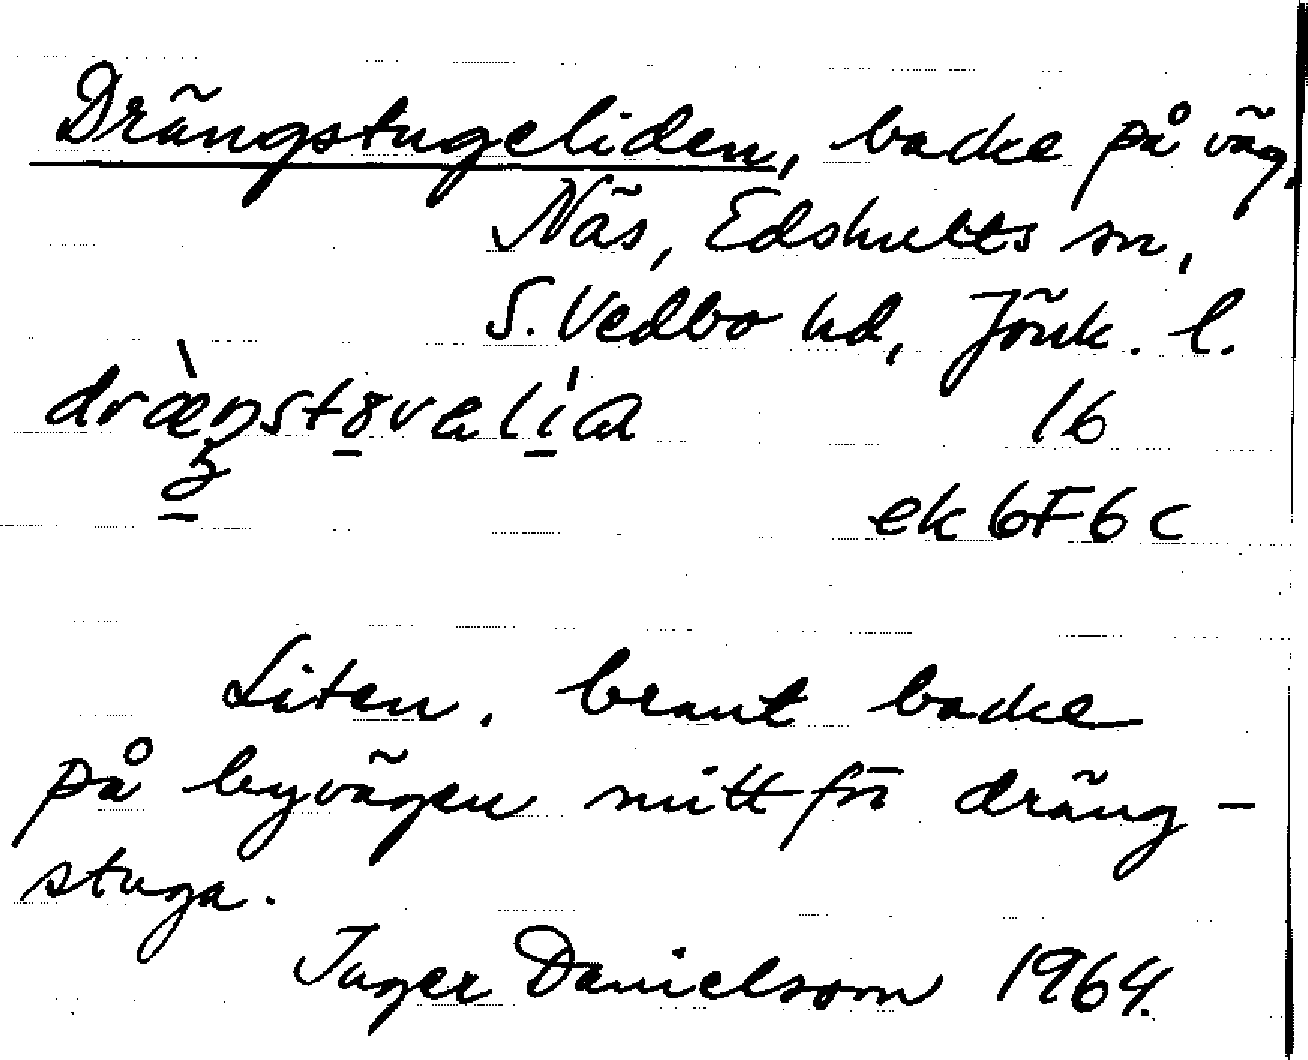 Drängstugeliden, backe på väg.
Näs, Edshults sn,
S. Vedbo hd, Jönk. l.
16
ek 6F6c
Liten, brant backe
på byvägen mitt för dräng-
stuga.
Inger Danielsson 1964.